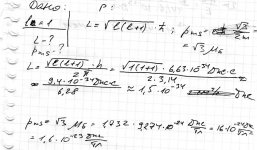 Дано: Р:
l = 1 L = √l(l+1) · ħ ; pms =
L - ? = √3 μБ
pms - ?
L = √l(l+1) · h / 2π = √1(1+1) · 6,63·10⁻³⁴ Дж·с / 2·3,14 =
= 9,4·10⁻³⁴ Дж·с / 6,28 ≈ 1,5·10⁻³⁴ Дж·с
pms = √3 μБ = 1,732 · 9,274·10⁻²⁴ Дж/Тл = 16·10⁻²⁴ Дж/Тл =
= 1,6·10⁻²³ Дж/Тл